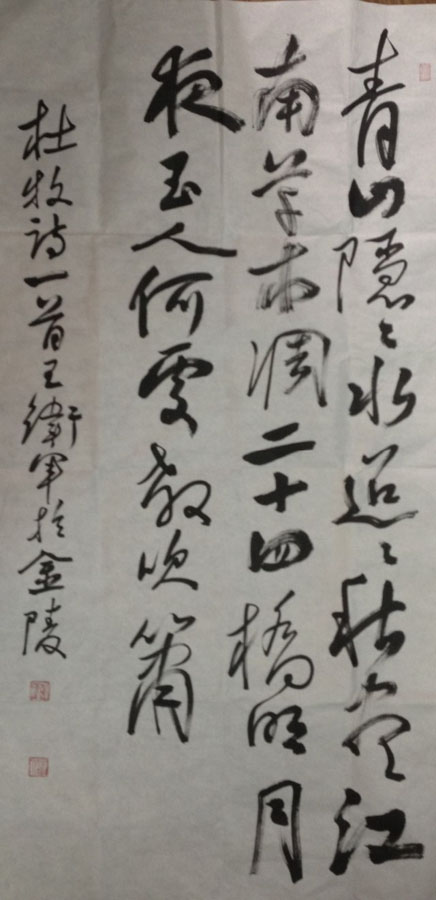 青山隱々水迢々秋盡江
南草木凋二十四橋明月
夜玉人何處教吹簫
杜牧詩一首王衛軍於金陵